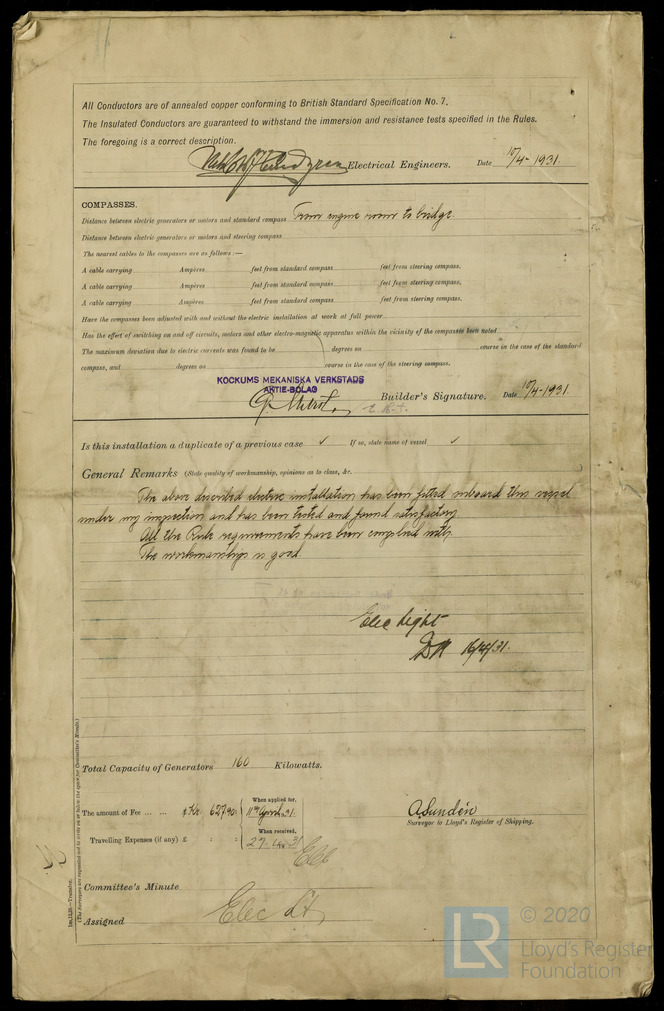 All Conductors are of annealed copper conforming to British Standard Specification No. 7.
The Insulated Conductors are guaranteed to withstand the immersion and resistance tests specified in the Rules.
The foregoing is a correct description.
Electrical Engineers. Date 10/4-1931.
COMPASSES.
Distance between electric generators or motors and standard compass From engine room to bridge.
Distance between electric generators or motors and steering compass
The nearest cables to the compasses are as follows:—
A cable carrying Ampères feet from standard compass feet from steering compass.
A cable carrying Ampères feet from standard compass feet from steering compass.
A cable carrying Ampères feet from standard compass feet from steering compass.
Have the compasses been adjusted with and without the electric installation at work at full power
Has the effect of switching on and off circuits, motors and other electro-magnetic apparatus within the vicinity of the compasses been noted
The maximum deviation due to electric currents was found to be degrees on course in the case of the standard
compass, and degrees on course in the case of the steering compass.
KOCKUMS MEKANISKA VERKSTADS
AKTIE-BOLAG
Builder's Signature. Date 10/4-1931.
Is this installation a duplicate of a previous case ✓ If so, state name of vessel ✓
General Remarks (State quality of workmanship, opinions as to class, &c.
The above described electric installation has been fitted onboard this vessel
under my inspection and has been tested and found satisfactory.
All the Rule requirements have been complied with.
The workmanship is good.
Elec Light
16/4/31.
Total Capacity of Generators 160 Kilowatts.
The amount of Fee ... ... Kr. 627.90 When applied for, 11th April 31.
Travelling Expenses (if any) £ : : When received, 27.4.31
A. Sundén
Surveyor to Lloyd's Register of Shipping.
Committee's Minute
Assigned Elec Lt
1m,11,28.—Transfer.
(The Surveyors are requested not to write on or below the space for Committee's Minute.)
LR © 2020
Lloyd's Register
Foundation